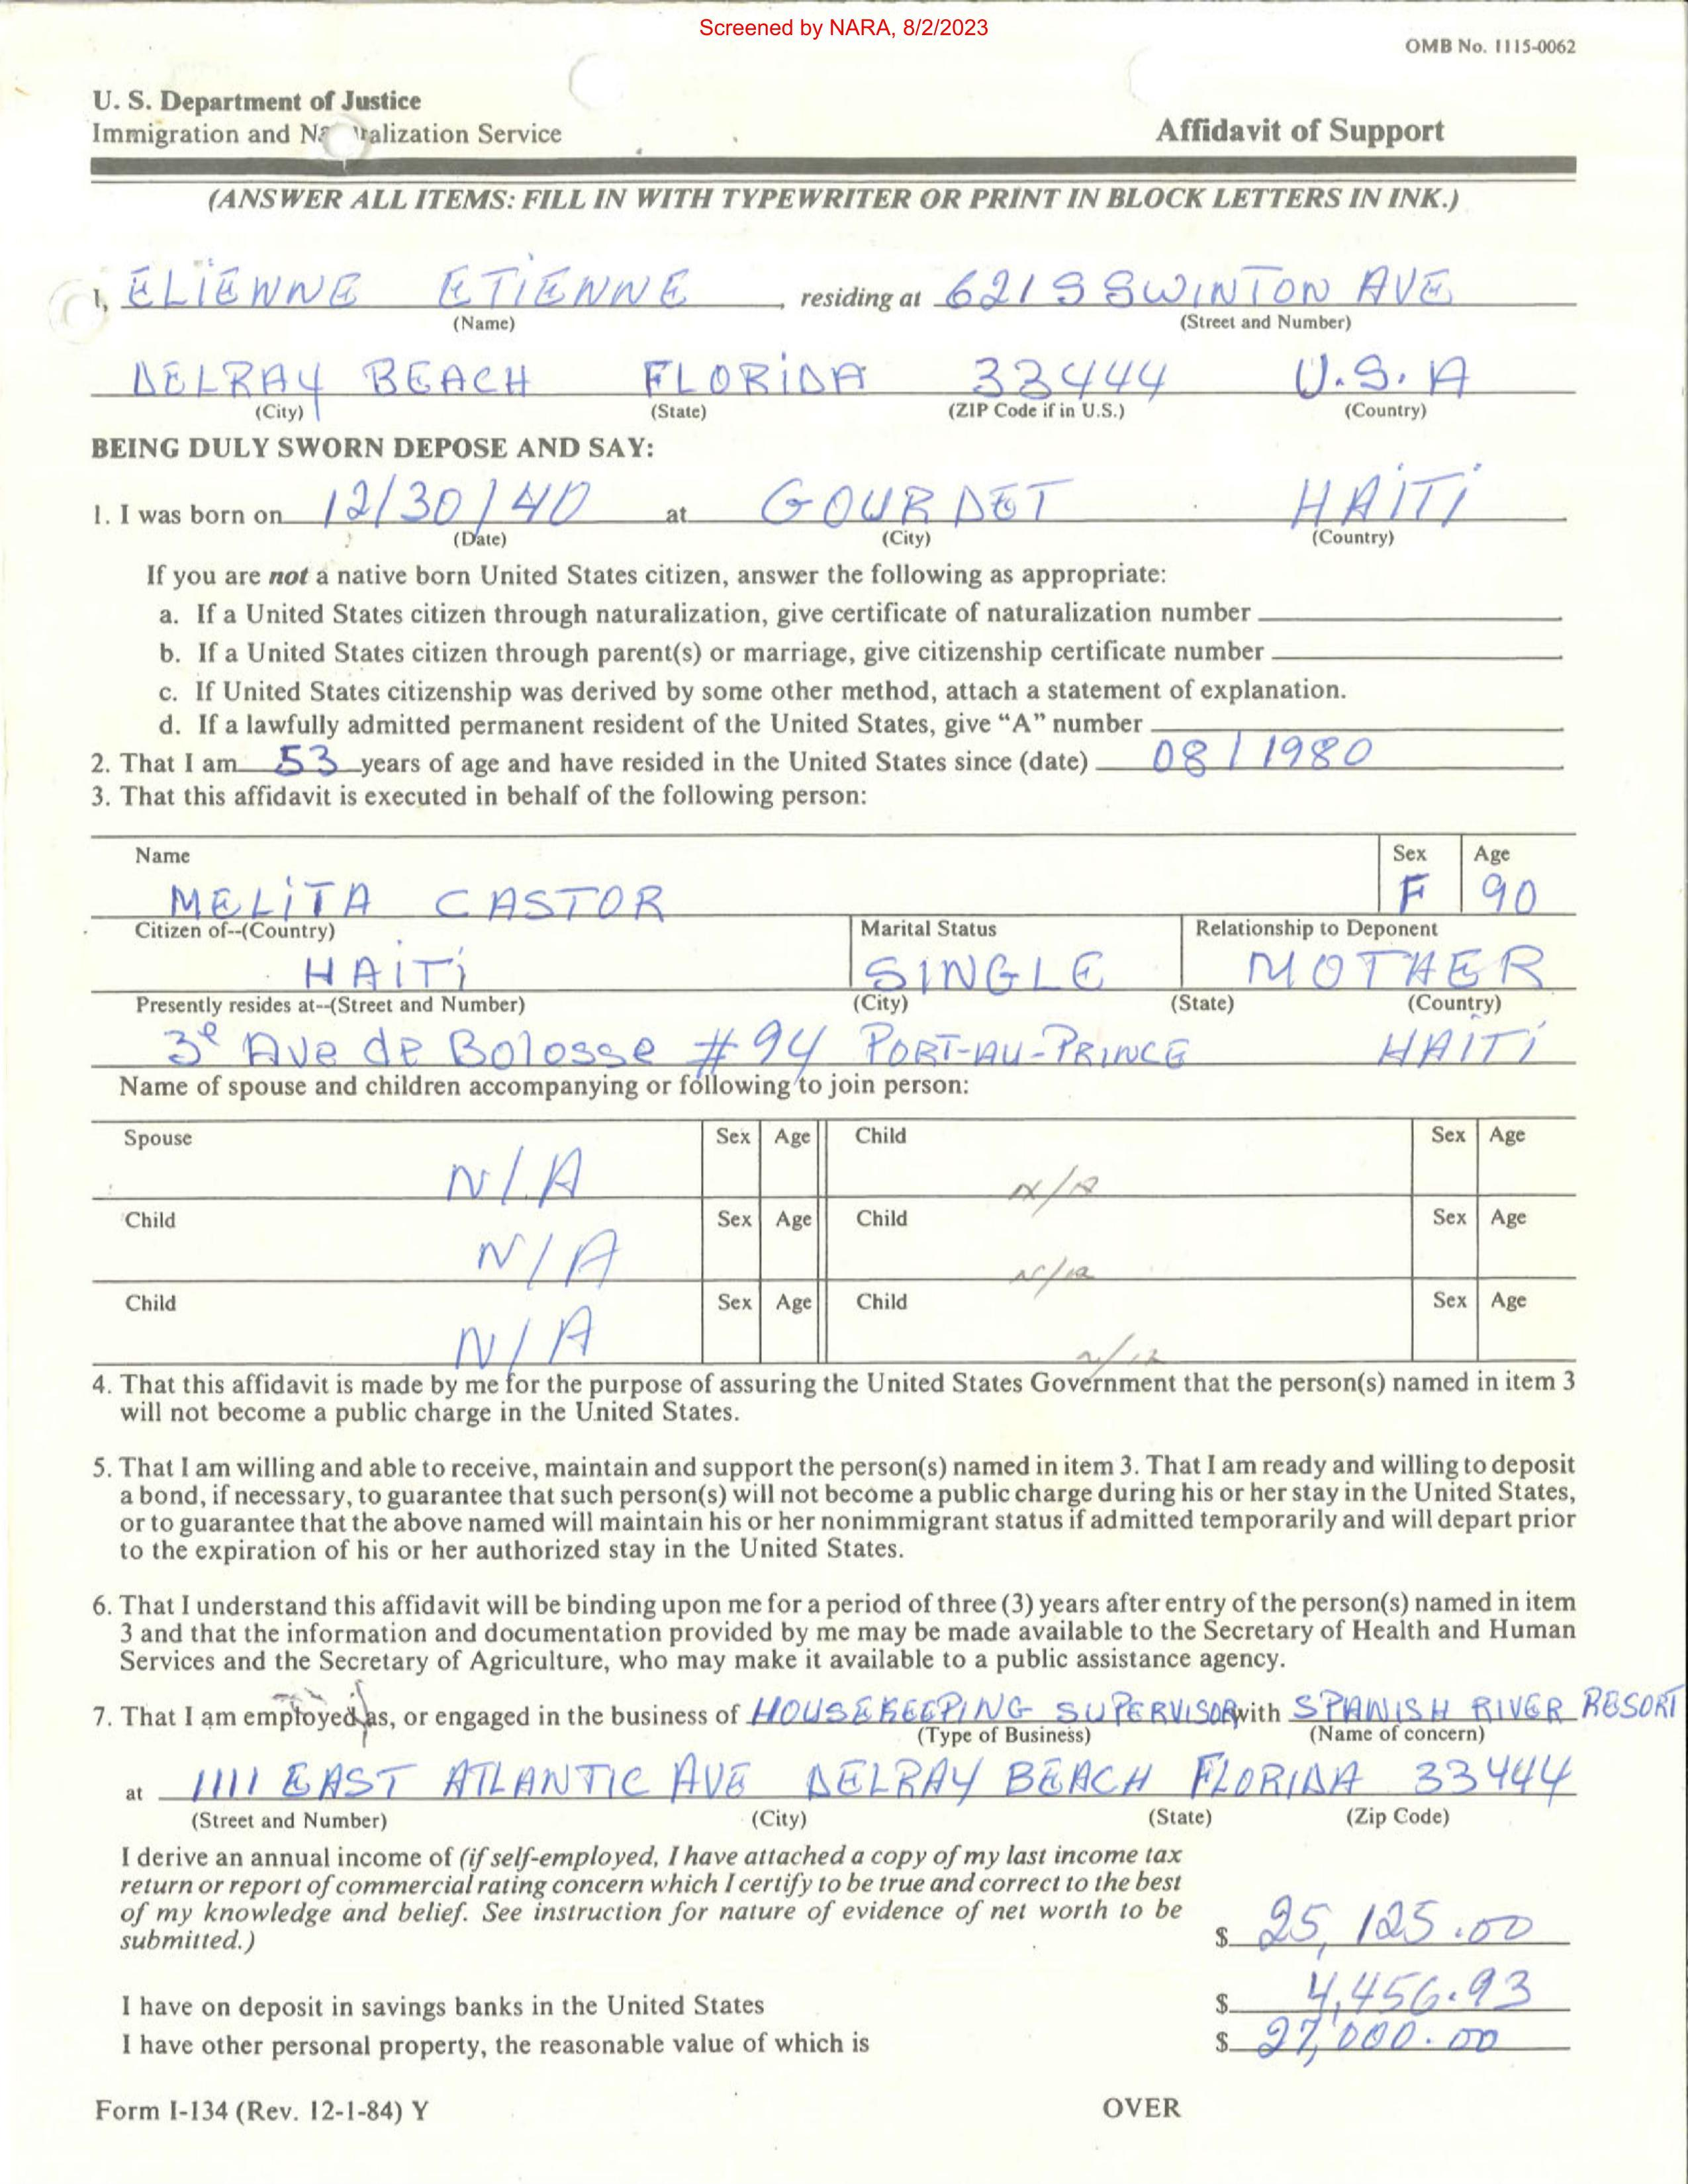 Screened by NARA, 8/2/2023
OMB No. 1115-0062
U. S. Department of Justice
Immigration and Na ralization Service
Affidavit of Support
(ANSWER ALL ITEMS: FILL IN WITH TYPEWRITER OR PRINT IN BLOCK LETTERS IN INK.)
I, ELIENNE ETIENNE, residing at 621 S SWINTON AVE
(Name) (Street and Number)
DELRAY BEACH FLORIDA 33444 U.S.A
(City) (State) (ZIP Code if in U.S.) (Country)
BEING DULY SWORN DEPOSE AND SAY:
1. I was born on 12/30/40 at GOURDET HAITI
(Date) (City) (Country)
If you are not a native born United States citizen, answer the following as appropriate:
a. If a United States citizen through naturalization, give certificate of naturalization number
b. If a United States citizen through parent(s) or marriage, give citizenship certificate number
c. If United States citizenship was derived by some other method, attach a statement of explanation.
d. If a lawfully admitted permanent resident of the United States, give “A” number
2. That I am 53 years of age and have resided in the United States since (date) 08/1980
3. That this affidavit is executed in behalf of the following person:
Name Sex Age
MELITA CASTOR F 90
Citizen of--(Country) Marital Status Relationship to Deponent
HAITI SINGLE MOTHER
Presently resides at--(Street and Number) (City) (State) (Country)
3e Ave de Bolosse #94 PORT-AU-PRINCE HAITI
Name of spouse and children accompanying or following to join person:
Spouse Sex Age Child Sex Age
N/A N/A
Child Sex Age Child Sex Age
N/A N/A
Child Sex Age Child Sex Age
N/A N/A
4. That this affidavit is made by me for the purpose of assuring the United States Government that the person(s) named in item 3
will not become a public charge in the United States.
5. That I am willing and able to receive, maintain and support the person(s) named in item 3. That I am ready and willing to deposit
a bond, if necessary, to guarantee that such person(s) will not become a public charge during his or her stay in the United States,
or to guarantee that the above named will maintain his or her nonimmigrant status if admitted temporarily and will depart prior
to the expiration of his or her authorized stay in the United States.
6. That I understand this affidavit will be binding upon me for a period of three (3) years after entry of the person(s) named in item
3 and that the information and documentation provided by me may be made available to the Secretary of Health and Human
Services and the Secretary of Agriculture, who may make it available to a public assistance agency.
7. That I am employed as, or engaged in the business of HOUSEKEEPING SUPERVISOR with SPANISH RIVER RESORT
(Type of Business) (Name of concern)
at 1111 EAST ATLANTIC AVE DELRAY BEACH FLORIDA 33444
(Street and Number) (City) (State) (Zip Code)
I derive an annual income of (if self-employed, I have attached a copy of my last income tax
return or report of commercial rating concern which I certify to be true and correct to the best
of my knowledge and belief. See instruction for nature of evidence of net worth to be
submitted.) $ 25,125.00
I have on deposit in savings banks in the United States $ 4,456.93
I have other personal property, the reasonable value of which is $ 27,000.00
Form I-134 (Rev. 12-1-84) Y OVER